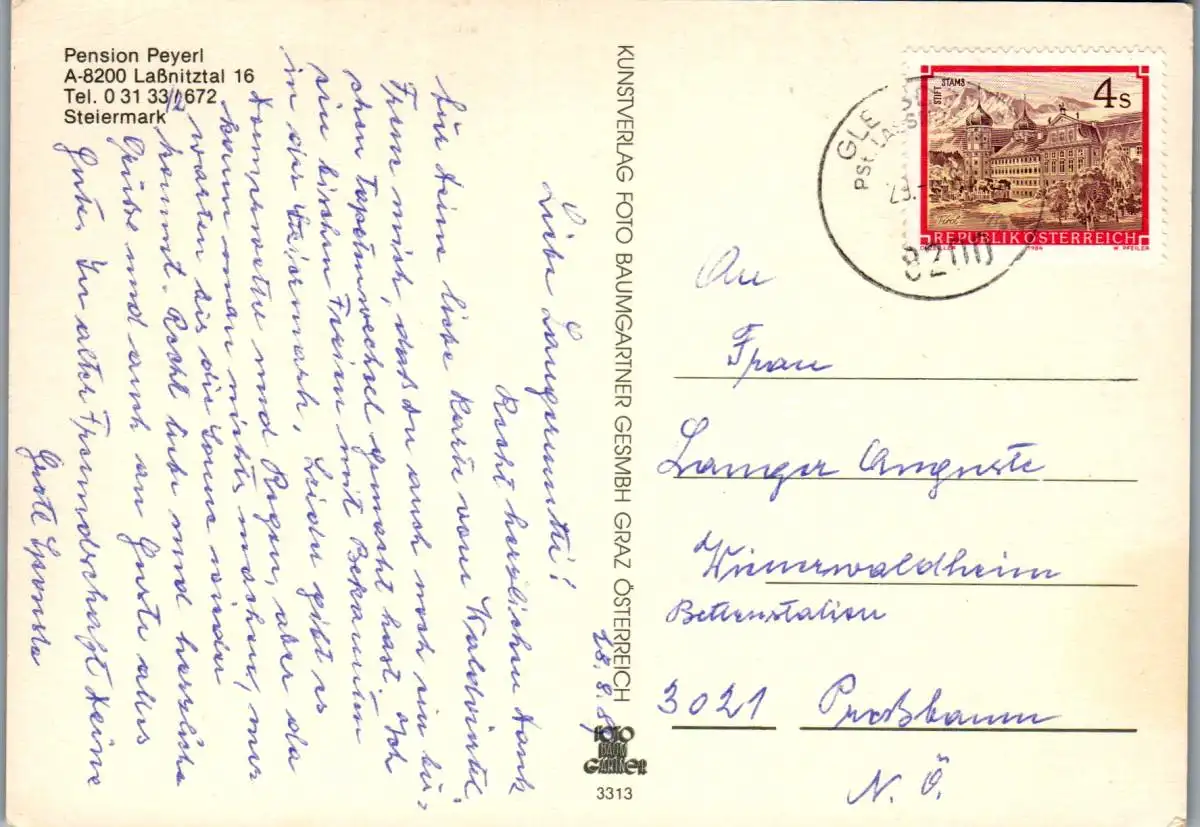 Pension Peyerl
A-8200 Laßnitztal 16
Tel. 0 31 33 / 672
Steiermark
12
28. 8.
Liebe Langermutti!
Recht herzlichen Dank
für Deine liebe Karte vom Waldviertel.
Freue mich, daß Du auch noch ein bis-
chen Tapetenwechsel gemacht hast. Ich
bin bischen Freien mit Bekannten
in der Steiermark. Leider gibt es
Donnerwetter und Regen, aber da
kann man nichts machen, nur
warten bis die Sonne wieder
kommt. Recht liebe und herzliche
Grüße und auch an Guste alles
Gute. In alter Freundschaft Deine
Guste
KUNSTVERLAG FOTO BAUMGARTNER GESMBH GRAZ ÖSTERREICH
FOTO
BAUM
GARTNER
3313
STIFT STAMS
4 S
Tirol
REPUBLIK ÖSTERREICH
1984
W. PFEILER
GLE
PSt. LASS
29.
8200
An
Frau
Langer Auguste
Wienerwaldheim
Bettenstation
3021 Preßbaum
N. Ö.